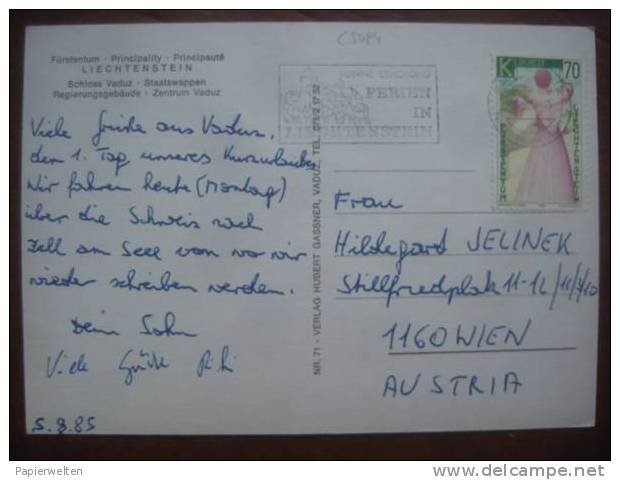 C5084
Fürstentum · Principality · Principauté
LIECHTENSTEIN
Schloss Vaduz · Staatswappen
Regierungsgebäude · Zentrum Vaduz
Viele Grüße aus Vaduz,
dem 1. Tag unseres Kurzurlaubes
Wir fahren heute (Montag)
über die Schweiz nach
Zell am See von wo wir
wieder schreiben werden.
Dein Sohn
Viele Grüße
5.8.85
NR. 71 - VERLAG HUBERT GASSNER, VADUZ, TEL. 075/2 17 52
FERIEN
IN
LIECHTENSTEIN
70
FÜRSTENTUM
LIECHTENSTEIN
Frau
Hildegard JELINEK
Stillfriedplatz 11-12/11/3/10
1160 WIEN
AUSTRIA
Papierwelten
delcampe.net